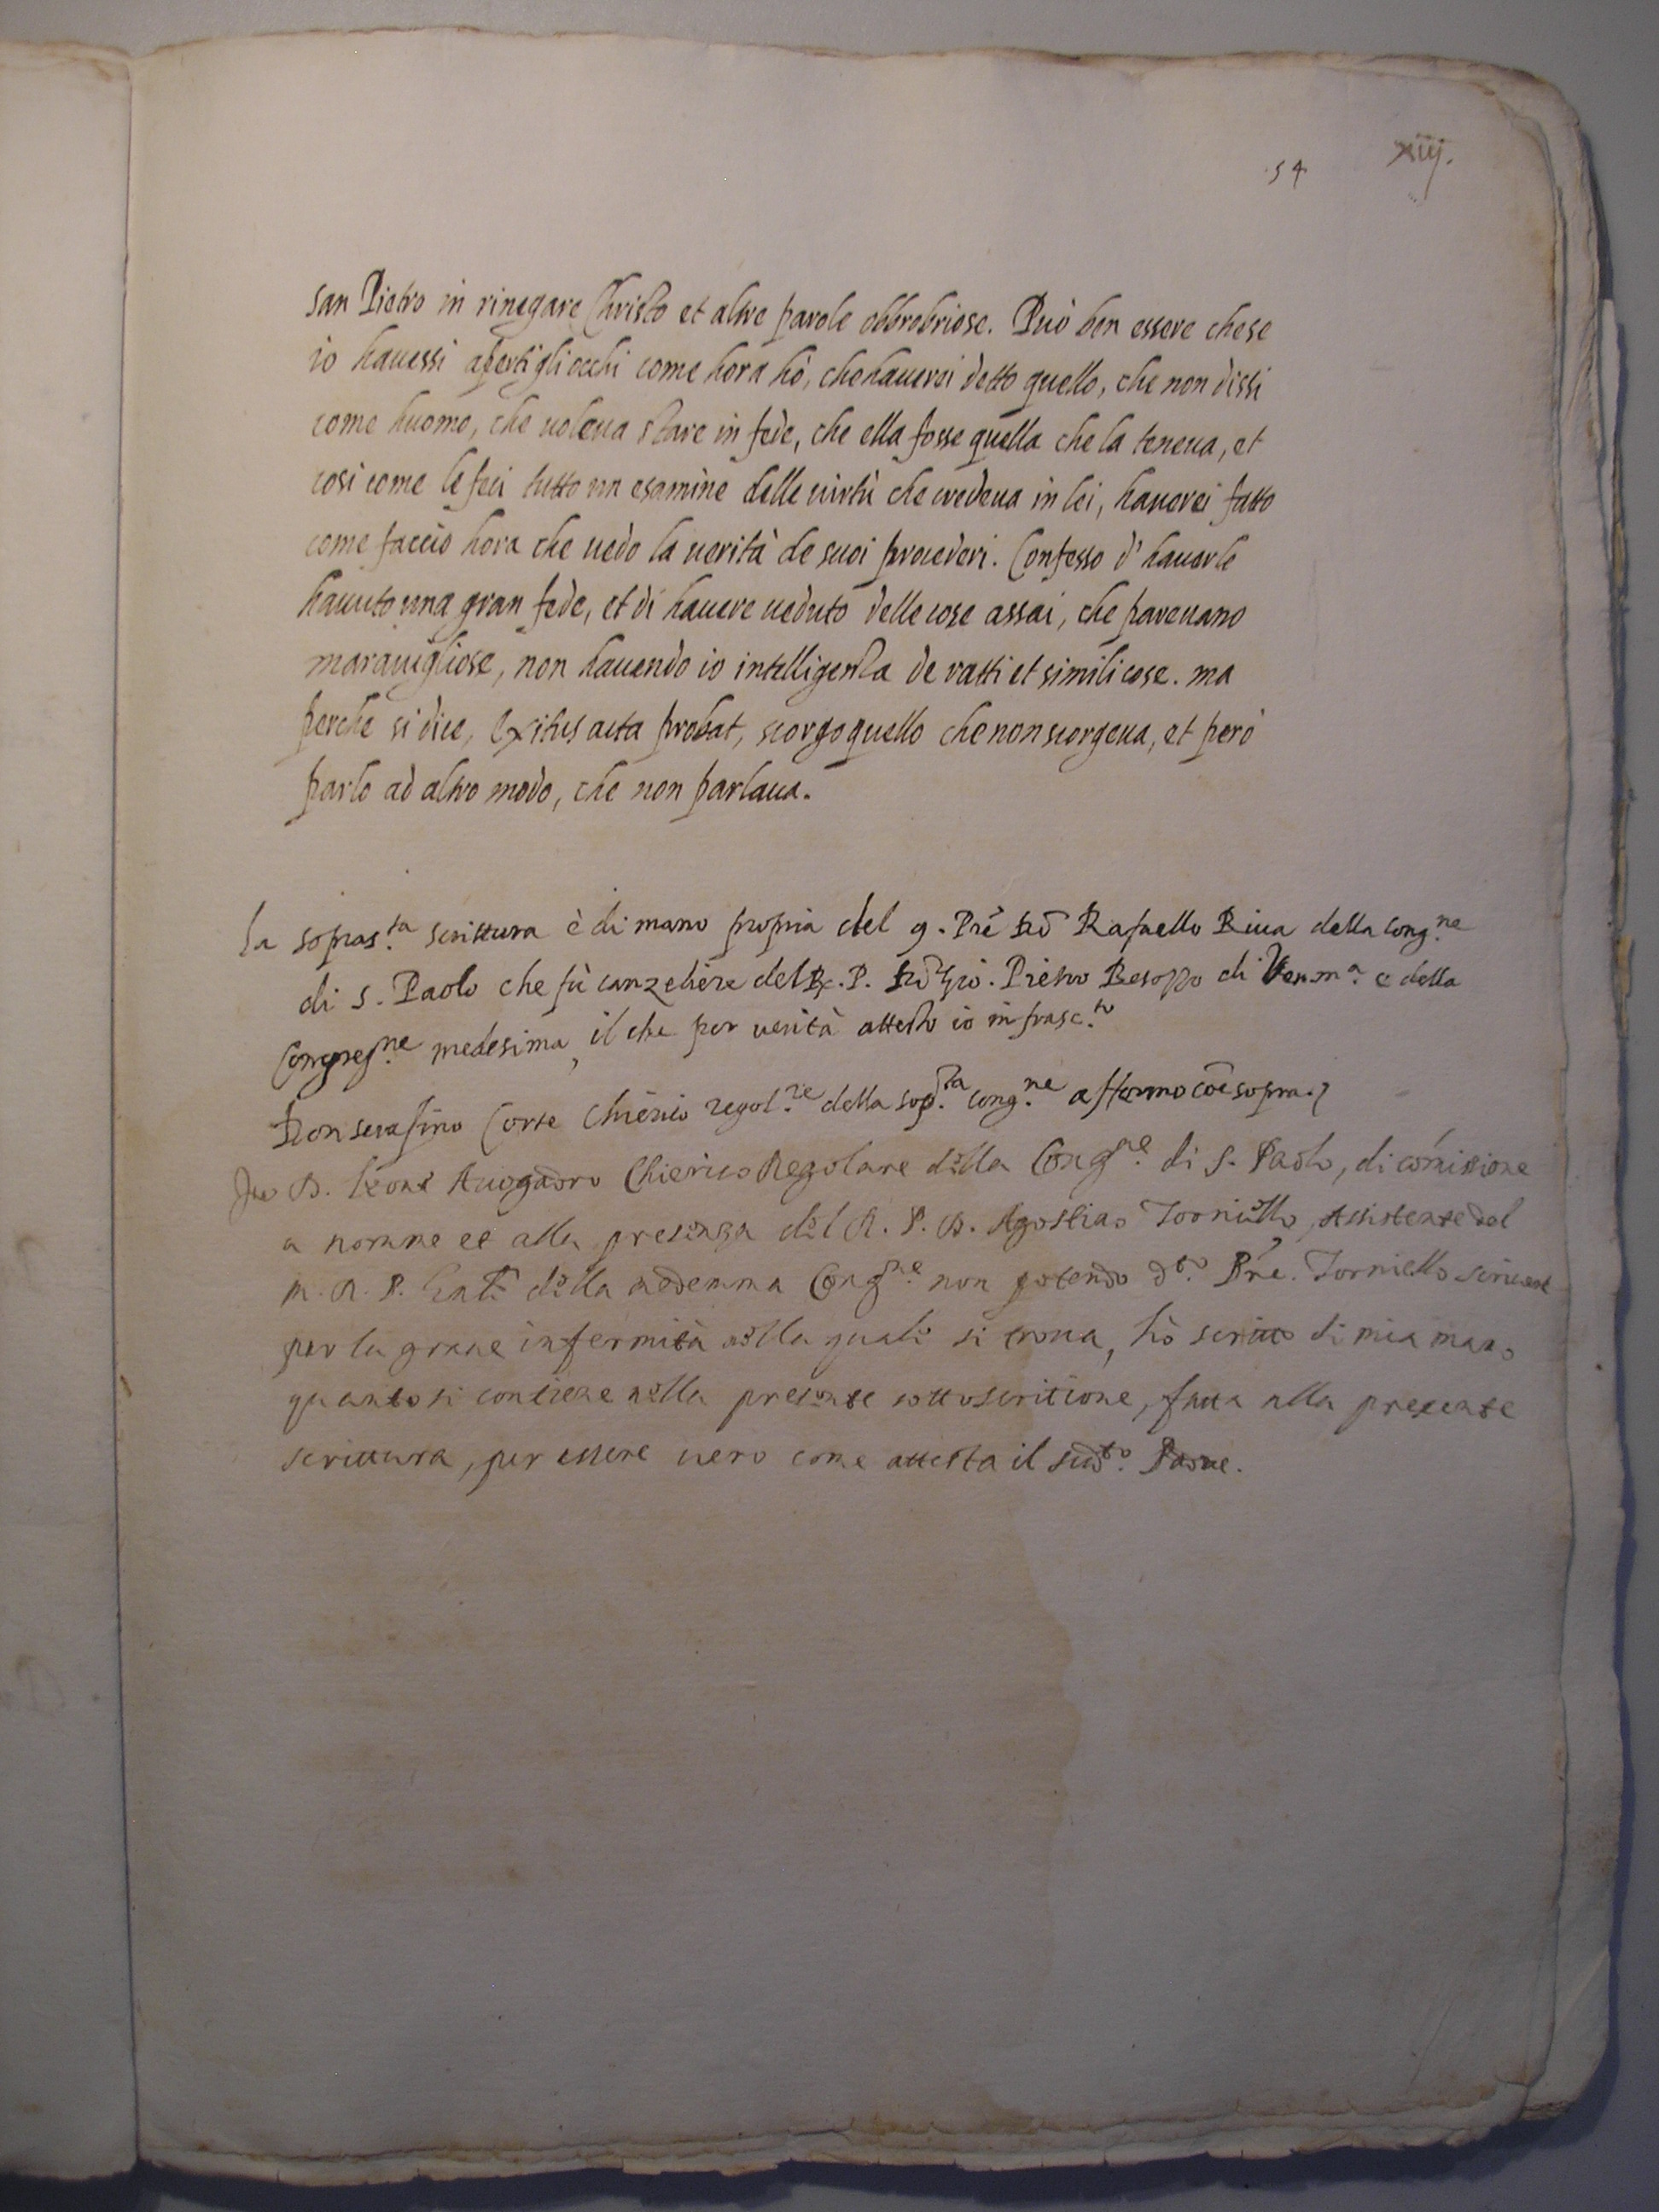 54 xiij.
San Pietro in rinegare Christo et altre parole obbrobriose. Può ben essere che se
io hauessi aperti gli occhi come hora hò, che hauerei detto quello, che non dissi
come huomo, che uoleua stare in fede, che ella fosse quella che la teneua, et
così come le feci tutto un esamine delle uirtù che credeua in lei, hauerei fatto
come faccio hora che uedo la uerità de suoi procederi. Confesso d'hauerle
hauuto una gran fede, et di hauere ueduto delle cose assai, che pareuano
marauigliose, non hauendo io intelligenza de ratti et simili cose. ma
perche si dice, Exitus acta probat, scorgo quello che non scorgeua, et però
parlo ad altro modo, che non parlaua.
La sopras.ta scrittura è di mano propria del q. Prè Dõ Rafaello Riua della Cong.ne
di S. Paolo che fù canzeliere del R. P. Dõ Gio. Pietro Besozzo di e della
Congreg.ne medesima, il che per uerità attesto io infrasc.to
Don Serafino Corte Chierico regol.re della sop.ta cong.ne affermo coẽ sopra.
Io D. Leone Auogadro Chierico Regolare della Cong.ne di S. Paolo, di comissione
a nomme et alla presenza del R. P. D. Agostino Torniello, Assistente del
M. R. P. Gnłe della medemma Cong.ne non potendo d.to Prẽ. Torniello scriuere
per la graue infermità nella quale si troua, hò scritto di mia mano
quanto si contiene nella presente sottoscritione, fatta alla presente
scrittura, per essere uero come attesta il sud.to Padre.